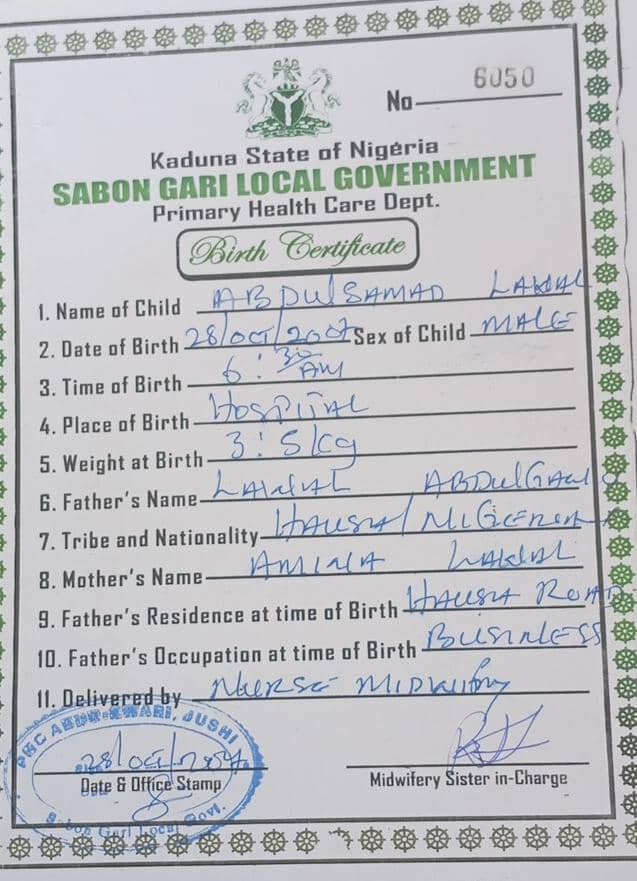 No 6050
Kaduna State of Nigeria
SABON GARI LOCAL GOVERNMENT
Primary Health Care Dept.
Birth Certificate
1. Name of Child ABDULSAMAD LAWAL
2. Date of Birth 28/OCT/2007 Sex of Child MALE
3. Time of Birth 6:30 AM
4. Place of Birth HOSPITAL
5. Weight at Birth 3:5kg
6. Father's Name LAWAL
7. Tribe and Nationality HAUSA/NIGERIA
8. Mother's Name AMINA LAWAL
9. Father's Residence at time of Birth HAUSA ROAD
10. Father's Occupation at time of Birth BUSINESS
11. Delivered by NURSE MIDWIFERY
PHC JUSHI
28/OCT/
Date & Office Stamp
Midwifery Sister in-Charge
Sabon Gari Local Govt.